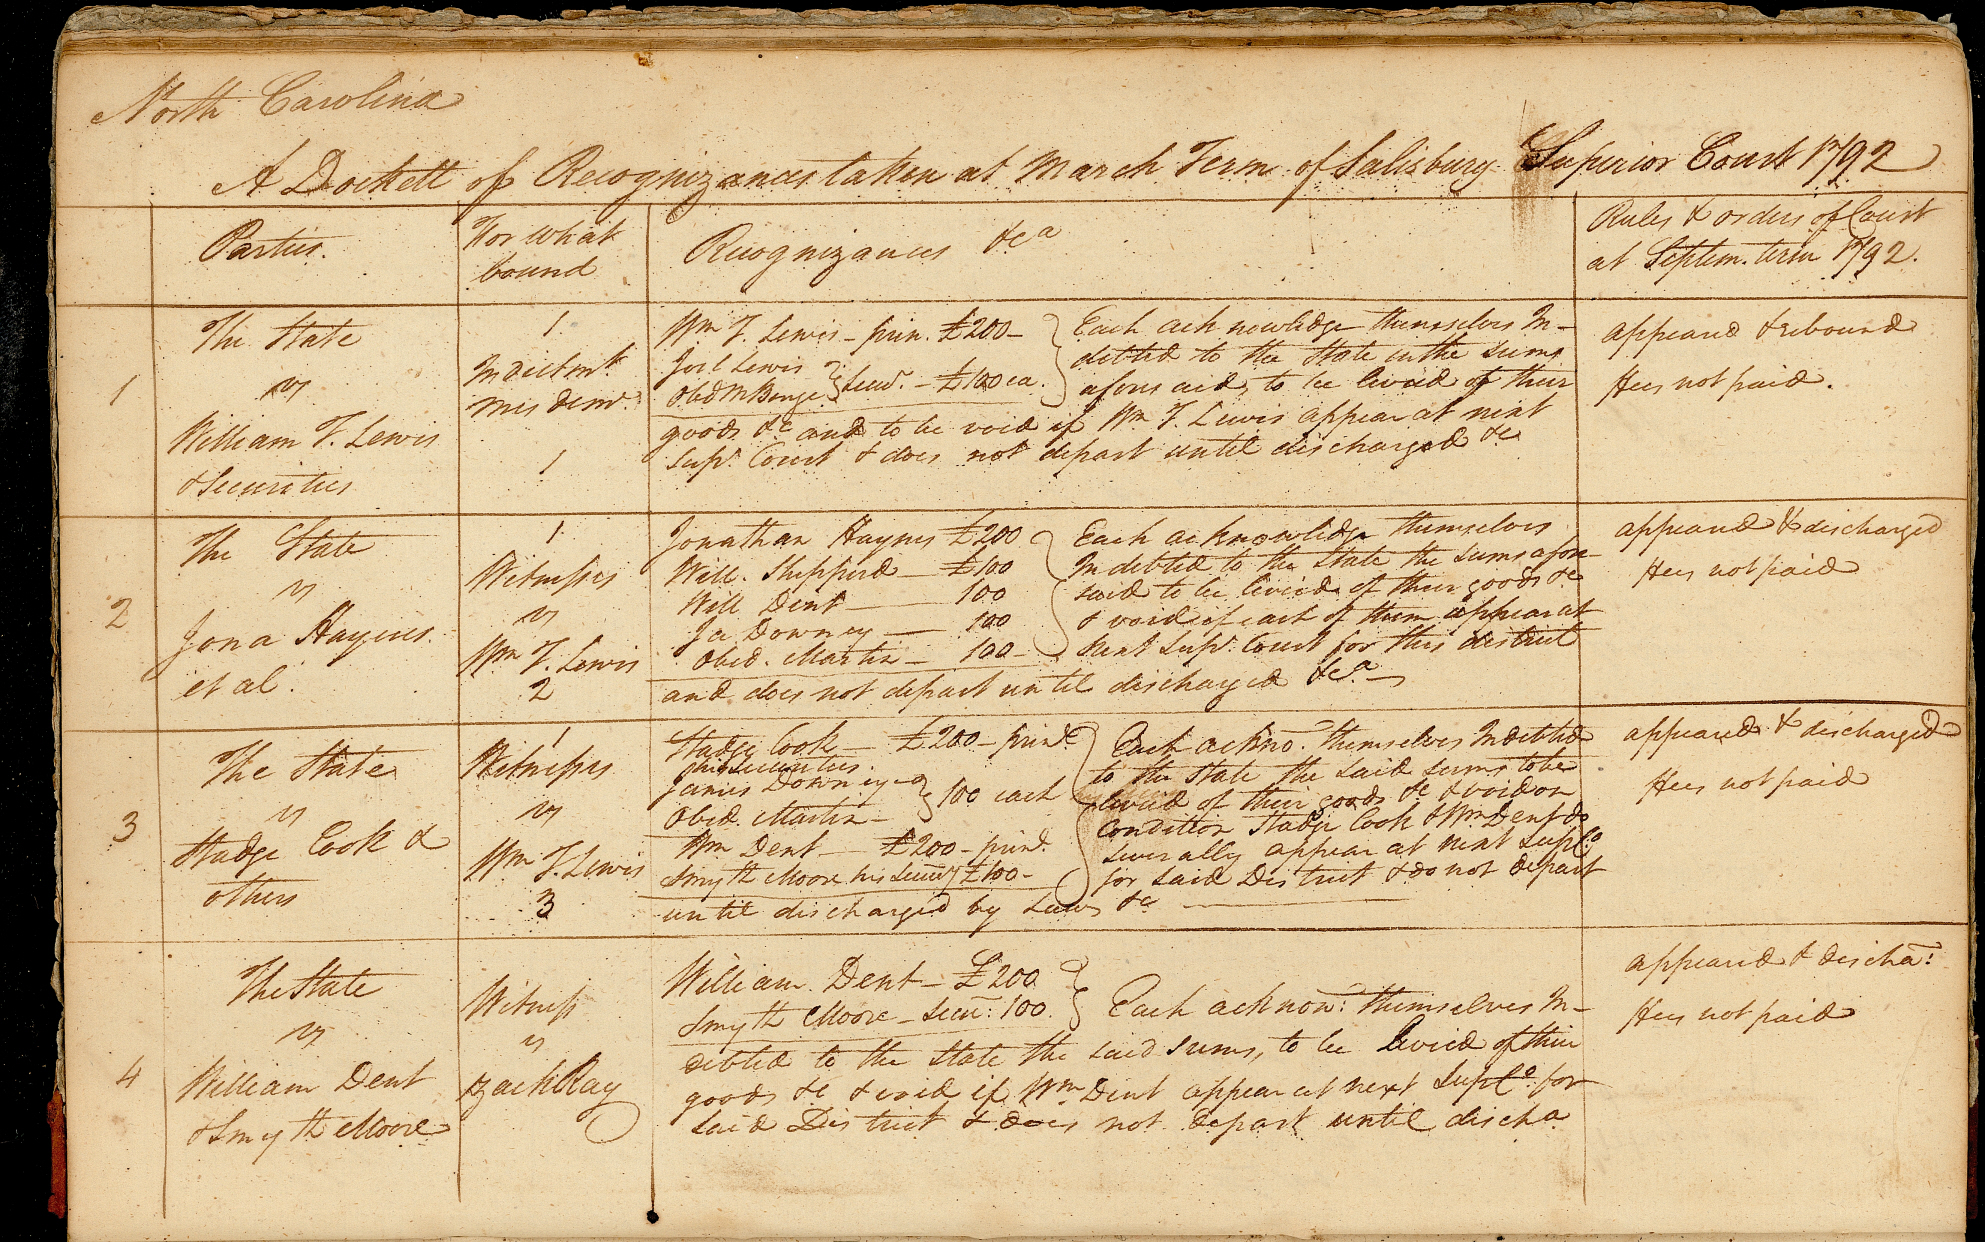 North Carolina
A Dockett of Recognizances taken at March Term of Salisbury Superior Court 1792
Parties.
For what
bound
Recognizances &ca
Rules & orders of Court
at Septem. term 1792.
1
The State
vs
William T. Lewis
& Securities
1
Indictmt
misdemr.
1
Wm T. Lewis - prin. £200 -
Joel Lewis
Obd M Benge } Secur. - £100 ea.
Each acknowledge themselves In-
debted to the State in the sums
aforesaid, to be levied of their
goods &c and to be void if Wm T. Lewis appear at next
Supr. Court & does not depart until discharged &c
appeared & rebound
Fees not paid.
2
The State
vs
Jona Haynes
et al.
1
Witnesses
vs
Wm T. Lewis
2
Jonathan Haynes £200
Will. Shepperd - £100
Will Dent - 100
Ja Downey - 100
Obed. Martin - 100 -
Each acknowledge themselves
Indebted to the State the sums afore
said to be levied of their goods &c
& void if each of them appear at
next Supr. Court for this district
and does not depart until discharged &ca. -
appeared & discharged
Fees not paid
3
The State
vs
Hadge Cook &
others
1
Witnesses
vs
Wm T. Lewis
3
Hadge Cook - £200 - prinl
his Securities.
James Downey -
Obed. Martin - } 100 each
Wm Dent - £200 - prinl.
Smyth Moore his Security £100 -
Each ackno. themselves Indebted
to the State the said sums to be
levied of their goods &c & void on
Condition Hadge Cook & Wm Dent do
severally appear at next Supl. Co
for said District & do not depart
until discharged by Law &c
appeared & discharged
Fees not paid
4
The State
vs
William Dent
& Smyth Moore
Witness
vs
Zach Ray
William Dent - £200
Smyth Moore - Secu: 100. } Each acknow: themselves In-
debted to the State the said sums, to be levied of their
goods &c & void if Wm Dent appear at next Supl Co. for
said District & does not depart until discha
appeared & discha:
Fees not paid